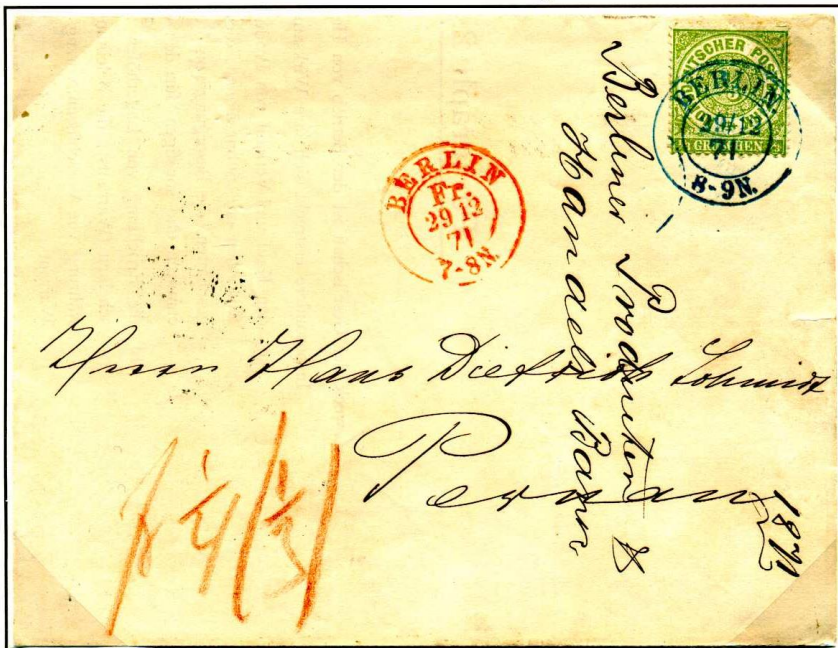 DEUTSCHER POST
GROSCHEN
BERLIN
29/12
71
8-9N.
BERLIN
Fr.
29 12
71
7-8N.
Berliner Produkten &
Handels Bank
1871
Herrn Hans Diedrich Schmidt
Pernau